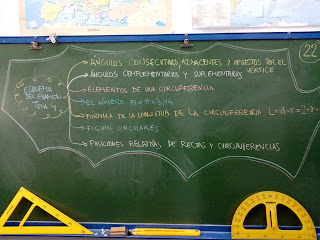 22
ESQUEMA
DEL EXAMEN
TEMA 4
ÁNGULOS CONSECUTIVOS, ADYACENTES Y OPUESTOS POR EL
VÉRTICE
ÁNGULOS COMPLEMENTARIOS Y SUPLEMENTARIOS
ELEMENTOS DE UNA CIRCUNFERENCIA
EL NÚMERO PI = π = 3,14
FÓRMULA DE LA LONGITUD DE LA CIRCUNFERENCIA L=
FIGURAS CIRCULARES
POSICIONES RELATIVAS DE RECTAS Y CIRCUNFERENCIAS